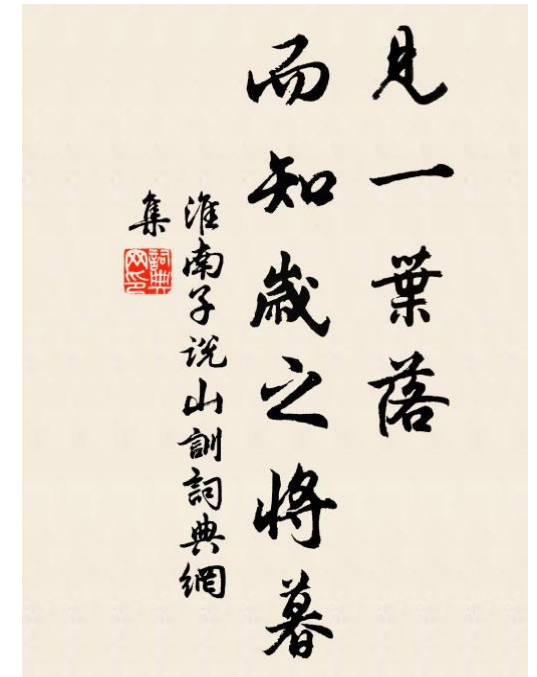 見一葉落
而知歲之將暮
淮南子說山訓詞典網
集
詞典
网印